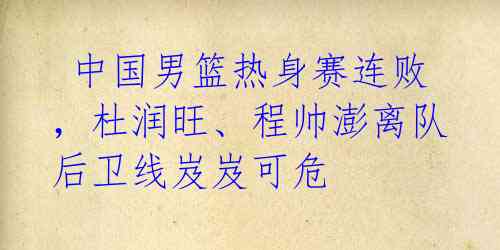 中国男篮热身赛连败
，杜润旺、程帅澎离队
后卫线岌岌可危